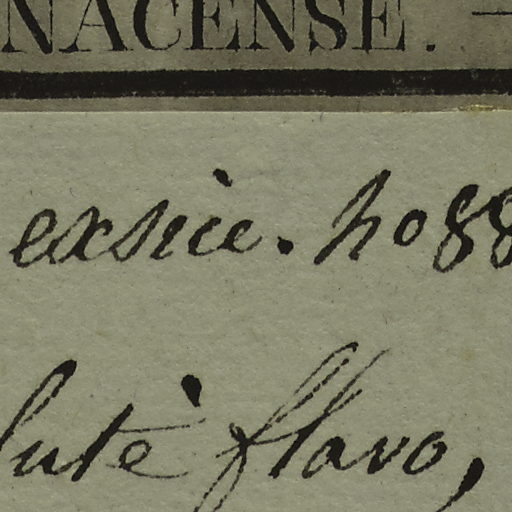 NACENSE. —
exsicc. no 88
lutè flavo,